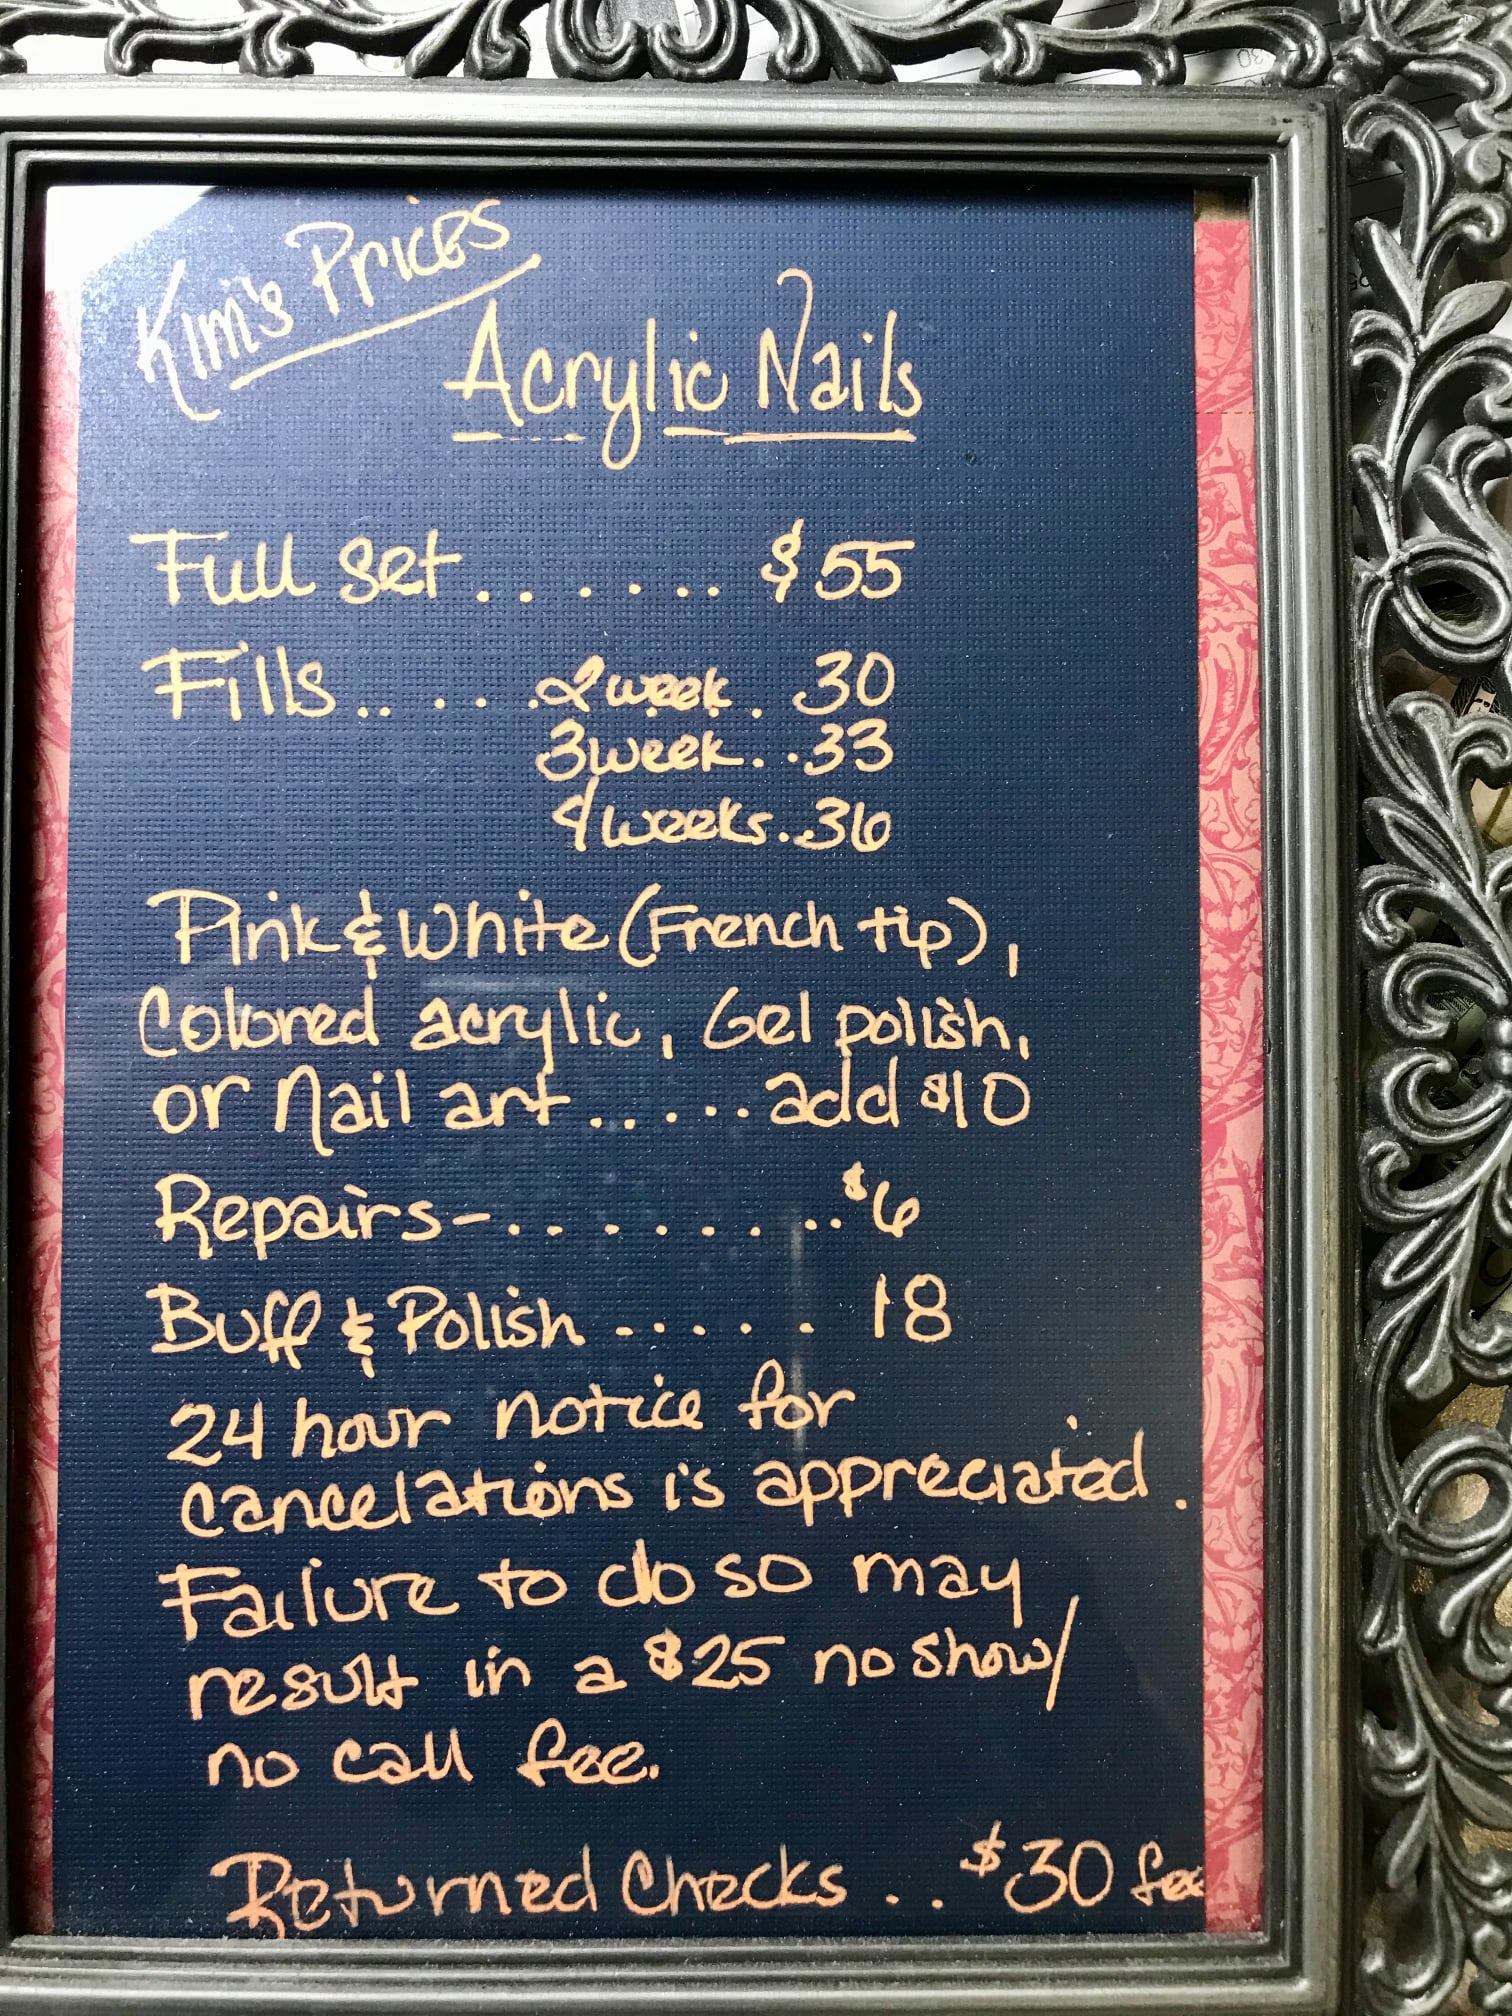 Kim's Prices
Acrylic Nails
Full set....... $55
Fills.. . . . 2 week. .30
3 week. .33
4 weeks..36
Pink & White (French tip),
Colored acrylic, Gel polish,
or Nail art..... add $10
Repairs-......... $6
Buff & Polish ..... 18
24 hour notice for
cancelations is appreciated.
Failure to do so may
result in a $25 no show/
no call fee.
Returned Checks .. $30 fee